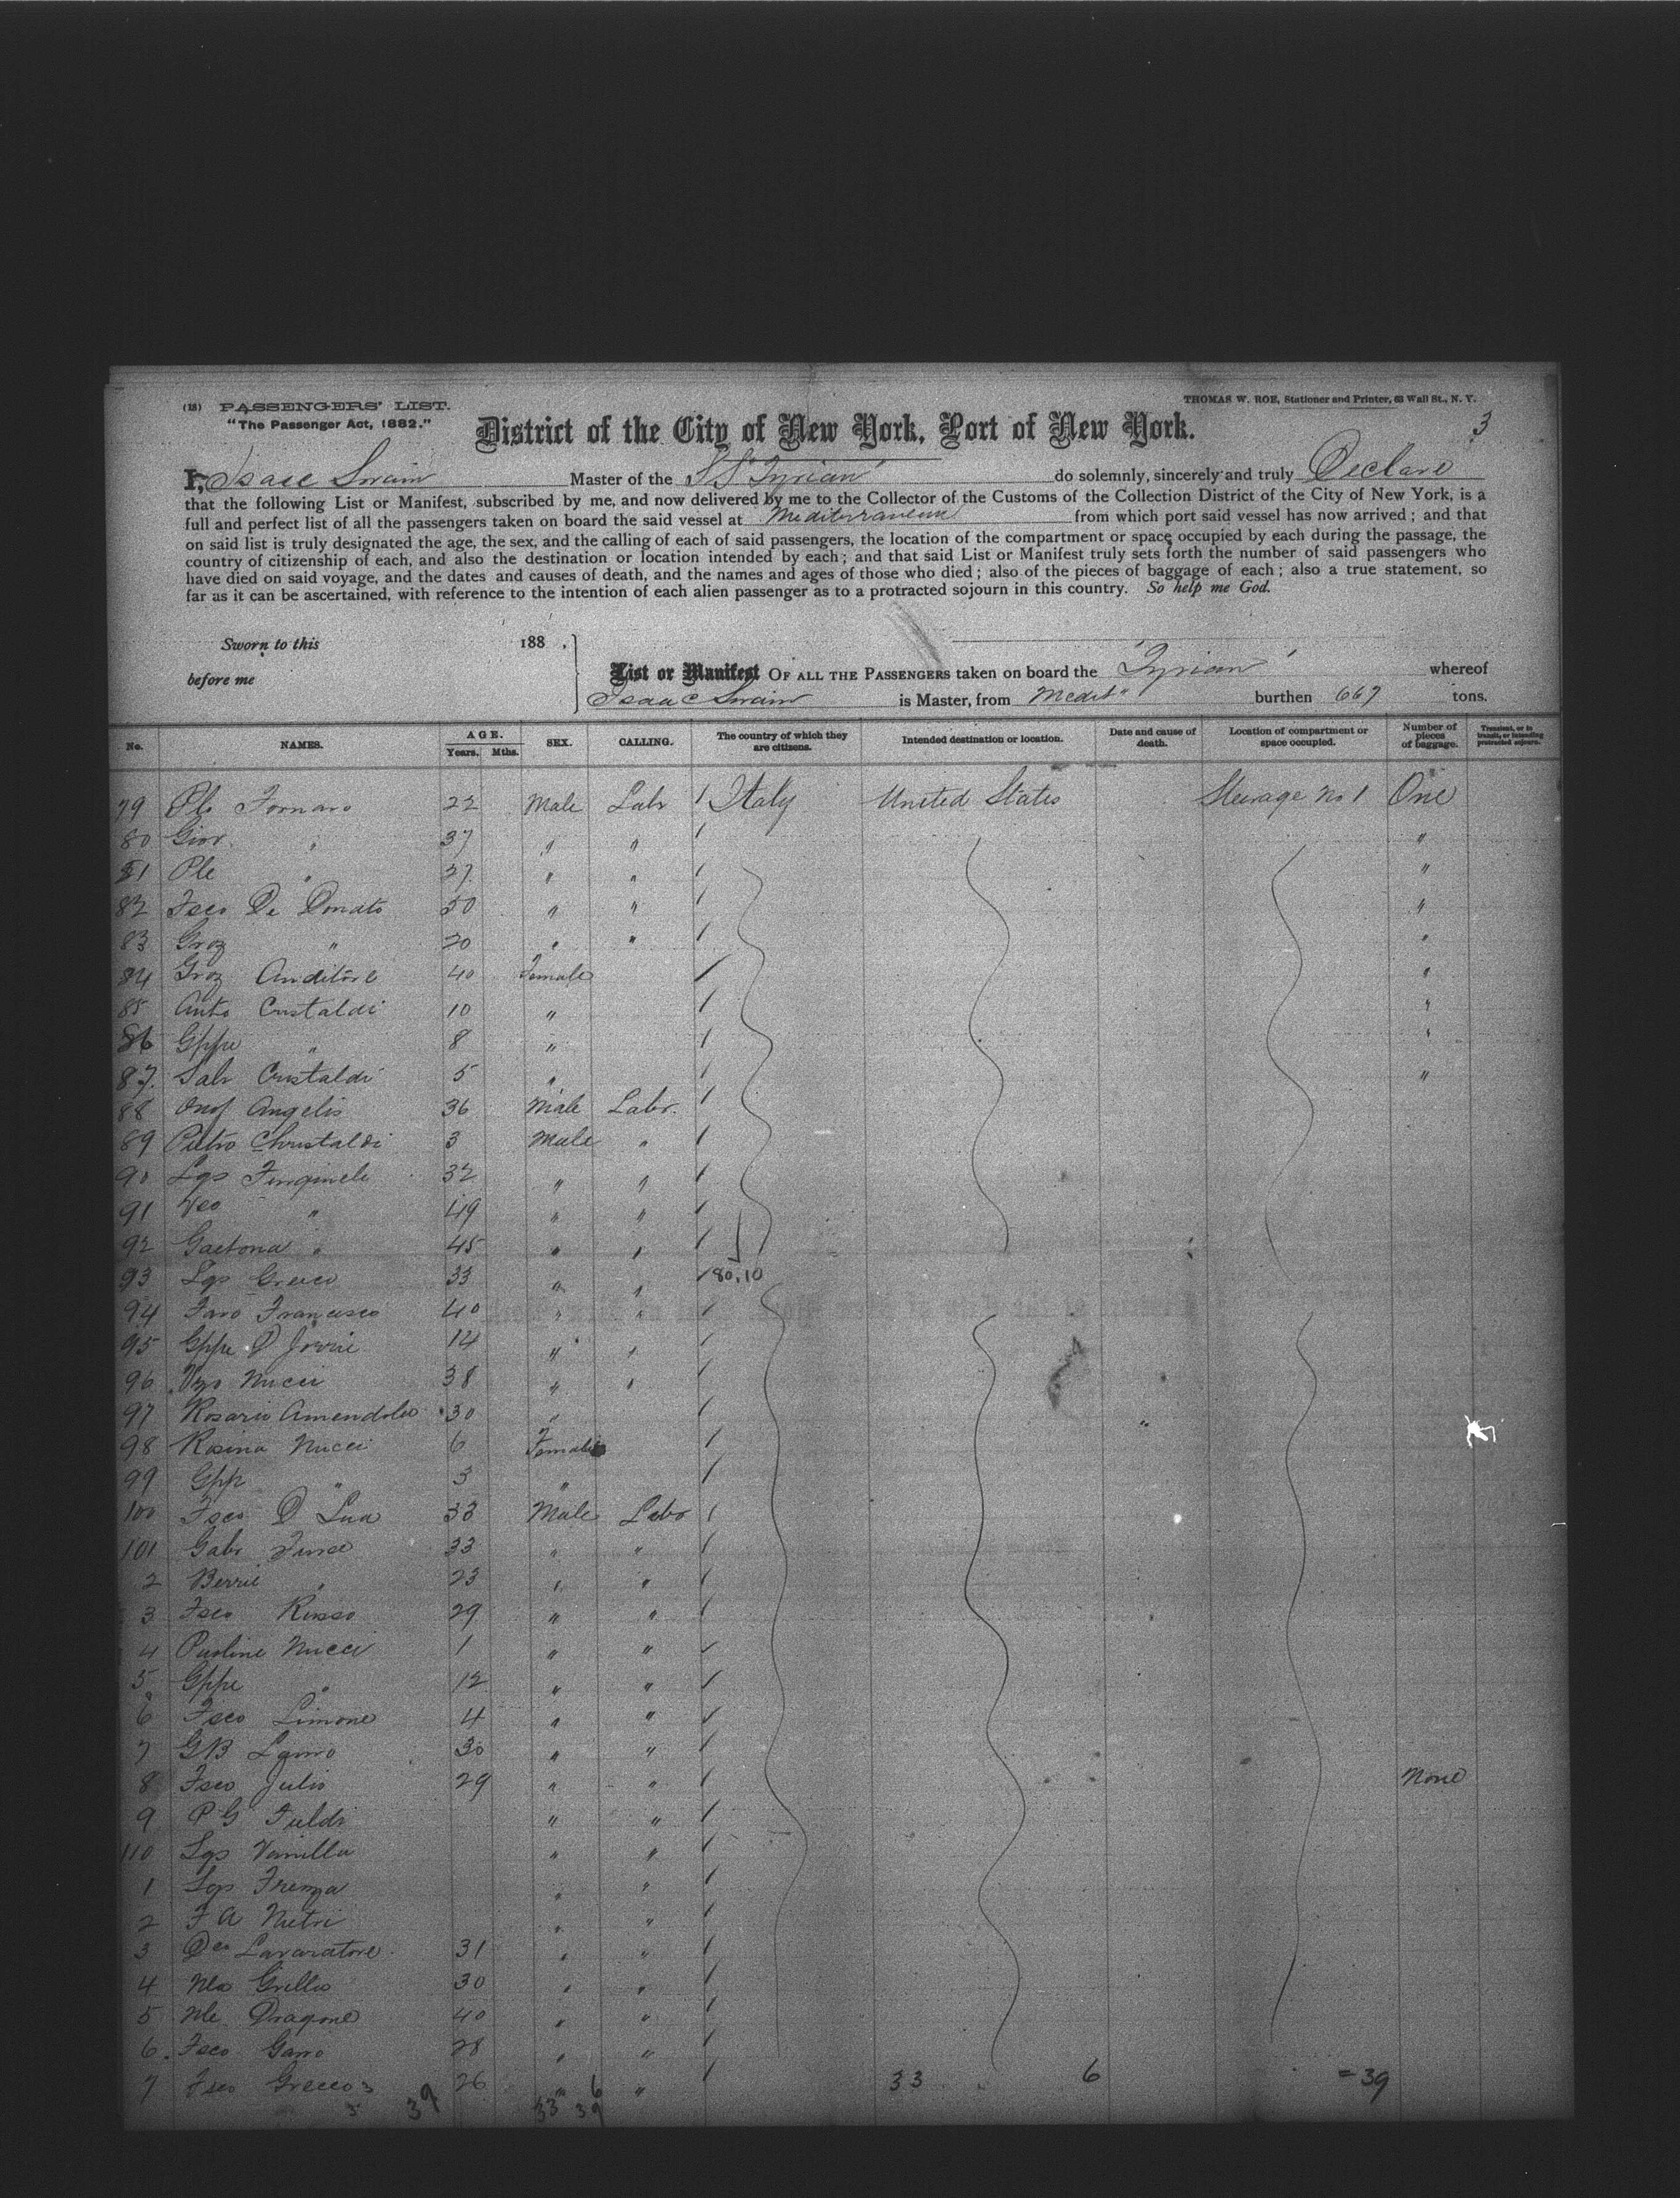 (13) PASSENGERS' LIST.
"The Passenger Act, 1882."
THOMAS W. ROE, Stationer and Printer, 63 Wall St., N. Y.
3
District of the City of New York, Port of New York.
I, Isaac Swain Master of the SS "Tyrian" do solemnly, sincerely and truly Declare
that the following List or Manifest, subscribed by me, and now delivered by me to the Collector of the Customs of the Collection District of the City of New York, is a
full and perfect list of all the passengers taken on board the said vessel at Mediterranean from which port said vessel has now arrived ; and that
on said list is truly designated the age, the sex, and the calling of each of said passengers, the location of the compartment or space occupied by each during the passage, the
country of citizenship of each, and also the destination or location intended by each ; and that said List or Manifest truly sets forth the number of said passengers who
have died on said voyage, and the dates and causes of death, and the names and ages of those who died ; also of the pieces of baggage of each ; also a true statement, so
far as it can be ascertained, with reference to the intention of each alien passenger as to a protracted sojourn in this country. So help me God.
Sworn to this 188 .
before me
List or Manifest OF ALL THE PASSENGERS taken on board the "Tyrian" whereof
Isaac Swain is Master, from Medit" burthen 667 tons.
No. NAMES. AGE. Years. Mths. SEX. CALLING. The country of which they are citizens. Intended destination or location. Date and cause of death. Location of compartment or space occupied. Number of pieces of baggage. Transient, or in transit, or intending protracted sojourn.
79 Plo Fornaro 22 Male Labr Italy United States Steerage No 1 One
80 Giov. " 37 " " "
81 Ple " 37 " " "
82 Fsco De Donato 50 " " "
83 Graz " 20 " " "
84 Graz Anditore 40 Female "
85 Anto Custaldi 10 " "
86 Gppe " 8 " "
87. Salv Custaldi 5 " "
88 Onof Angelis 36 Male Labr.
89 Pietro Chrustaldi 3 Male "
90 Lgs 32 " "
91 " 49 " "
92 Gaetona " 45 " "
93 Lgs Greico 33 " " 80,10
94 Faro Francisco 40 " "
95 Gppe D 14 " "
96 Nucci 38 " "
97 Rosario Amendola 30 " "
98 Rosina Nucci 6 Female
99 Gpp " 3 "
100 Fsco D Lua 33 Male Labo
101 Gabr 33 " "
2 " 23 " "
3 Fsco Russo 29 " "
4 Paoline Nucci 1 " "
5 Gppe " 12 " "
6 Fsco Limone 4 " "
7 GB 30 " "
8 Fsco Julio 29 " " None
9 P G Fuldi " "
110 Lgs Vanilla " "
1 Lgs " "
2 F A Nutri " "
3 Lavaratore 31 " "
4 Nla Grillo 30 " "
5 Nle Dragone 40 " "
6 Fsco Garro 28 " "
7 Fsco Grecco 26 " " 33 6 = 39
39 33 6 39